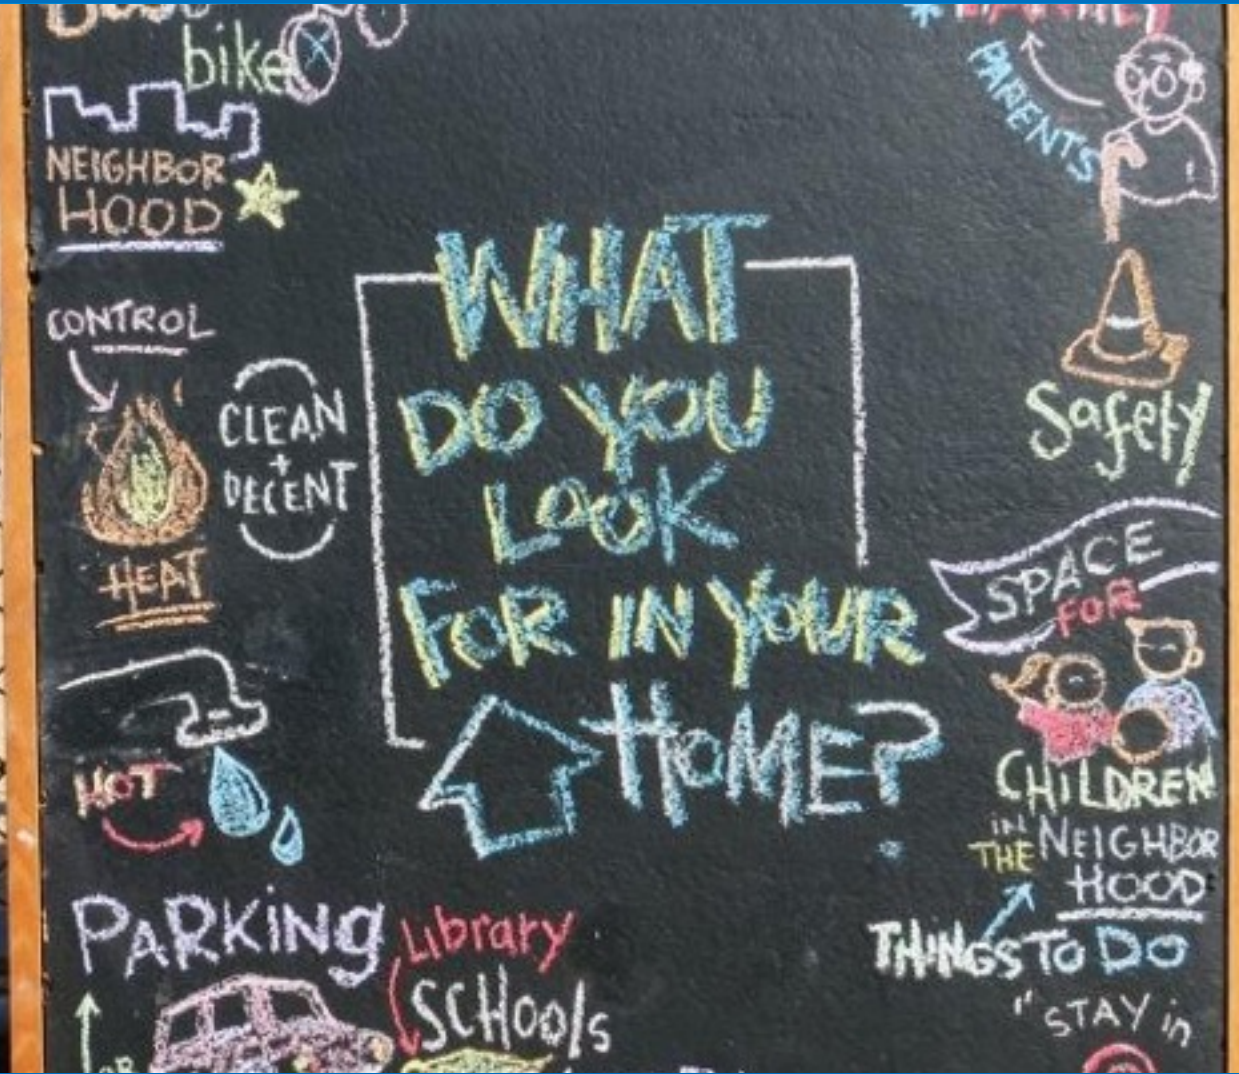 bike
NEIGHBOR
HOOD
CONTROL
CLEAN
+
DECENT
HEAT
HOT
PARKING
Library
SCHOOls
WHAT
DO YOU
LOOK
FOR IN YOUR
HOME?
FAMILY
PARENTS
Safety
SPACE
FOR
CHiLDREN
IN
THE NEIGHBOR
HOOD
THINGS TO DO
"STAY in
OR